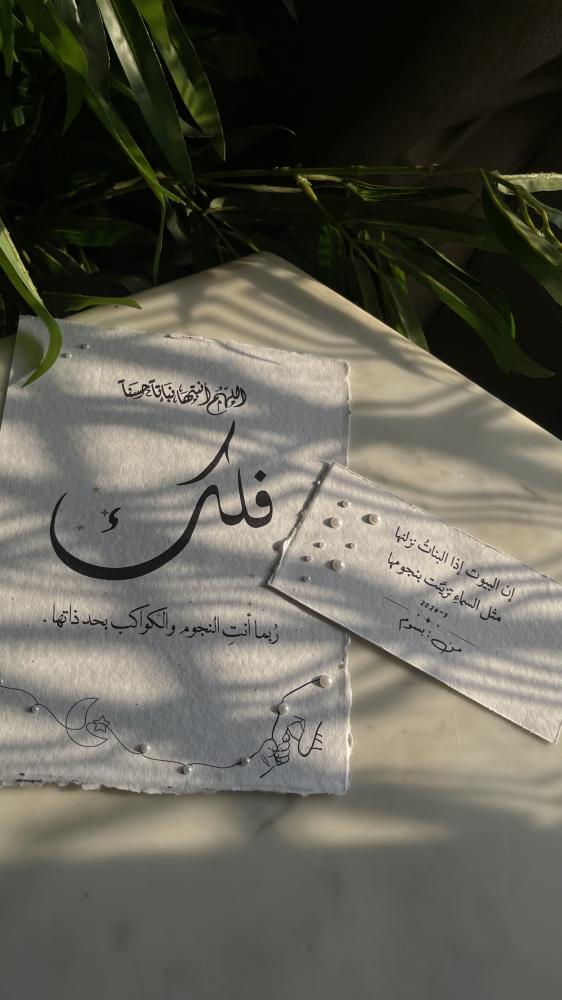 اللهم أنبتها نباتاً حسناً
فلك
رُبما أنتِ النجوم والكواكب بحد ذاتها .
إن البيوت إذا البناتُ نزلنها
مثل السماءِ تزيّنت بنجومها
2026-9
من : بسوم